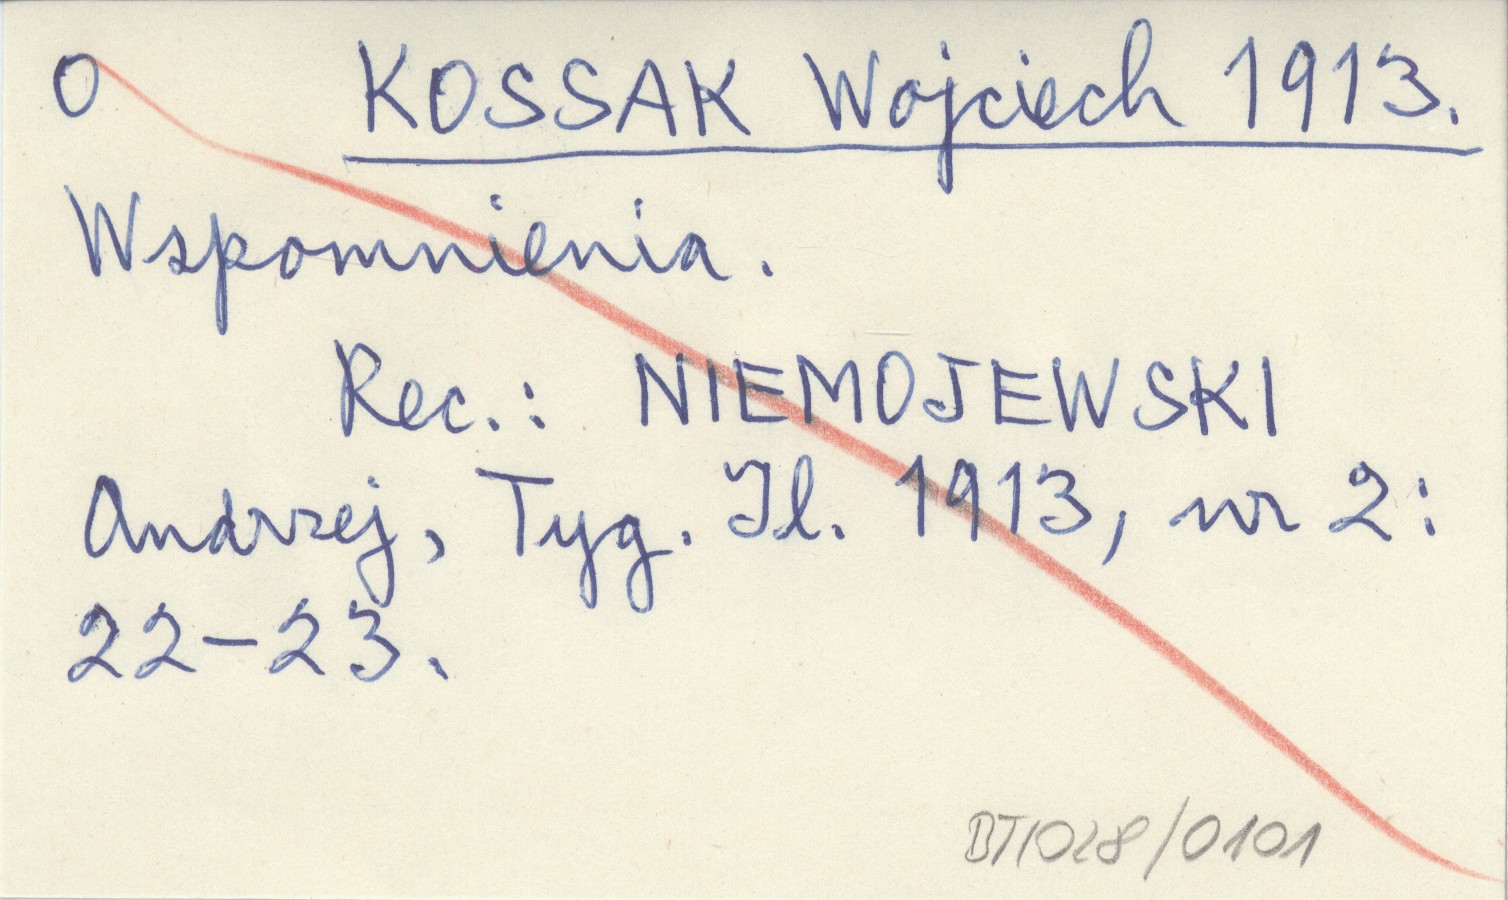 O KOSSAK Wojciech 1913.
Wspomnienia.
Rec.: NIEMOJEWSKI
Andrzej, Tyg. Il. 1913, nr 2:
22-23.
BT1028/0101